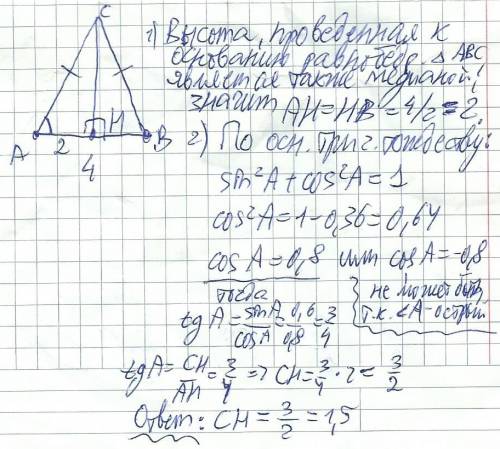 C
1) Высота, проведенная к
основанию равнобедр. Δ ABC
является также медианой!
значит AH=HB=4/2=2.
A 2 H B
4
2) По осн. триг. тождеству:
sin²A+cos²A=1
cos²A=1-0,36=0,64
cos A=0,8 или cos A=-0,8
тогда
не может быть,
т.к. ∠A-острый
tg A=sinA/cosA=0,6/0,8=3/4
tg A=CH/AH=3/4 => CH=3/4·2=3/2
Ответ: CH=3/2=1,5